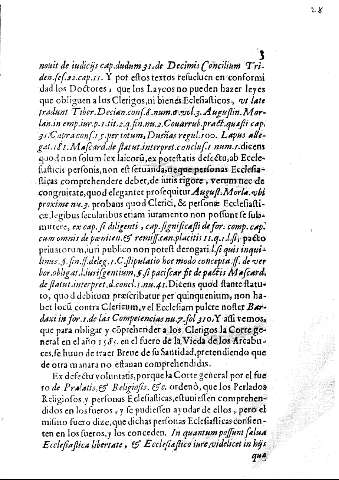 28
3
nouit de iudicijs cap. dudum 31. de Decimis Concilium Tri-
den. ses. 22. cap. 11. Y por estos textos resueluen en conformi
dad los Doctores, que los Laycos no pueden hazer leyes
que obliguen a los Clerigos, ni bienes Eclesiasticos, vt late
tradunt Tiber. Decian. cons. 8. num. 6. vol. 3. Augustin. Mor-
lan. in emp. iur. p. 1. tit. 2. q. sin. nu. 2. Couarrub. pract. quæst. cap.
31. Cabra cons. 15. per totum, Dueñas regul. 100. Lapus alle-
gat. 181. Mascard. de statut. interpret. conclus. 1 num. 1. dicens
quod non solum lex laicorũ, ex potestatis defectu, ab Eccle-
siasticis personis, non est seruanda, neque personas Ecclesia-
sticas comprehendere debet, de iuris rigore, verum nec de
congruitate, quod eleganter prosequitur August. Morla. vbi
proxime nu. 3. probans quod Clerici, & personæ Ecclesiasti-
cæ, legibus secularibus etiam iuramento non possunt se sub-
mittere, ex cap. si diligenti, cap. significasti de for. comp. cap.
cum omnis de pæniten. & remiss. can. placuit 11. q. 1. l. si; pacto
priuatorum, iuri publico non potest derogari. l. si quis inqui-
linus. §. fin. ff. deleg. 1. C. stipulatio hoc modo concepta. ff. de ver-
bor. obligat. l. iurisgentium, §. si paciscar ff. de pactis Mascard.
de statut. interpret. d. concl. 1. nu. 41. Dicens quod stante statu-
to, quod debitum præscribatur per quinquenium, non ha-
bet locũ contra Clericum, v el Ecclesiam pulcre noster Bar-
daxi in for. 1. de las Competencias nu. 7. fol. 310. Y assi vemos
que para obligar y cõprehender a los Clerigos la Corte ge-
neral en el año 1585. en el fuero de la Vieda de los Arcabu-
ces, se huuo de traer Breue de su Santidad, pretendiendo que
de otra manera no estauan comprehendidos.
Ex defectu voluntatis, porque la Corte general por el fue
ro de Prælatis, & Religiosis. &c. ordenó, que los Perlados
Religiosos y personas Eclesiasticas, estuuiessen comprehen-
didos en los fueros, y se pudiessen ayudar de ellos, pero el
mismo fuero dize, que dichas personas Ecclesiasticas consien-
ten en los fueros, y los conceden. In quantum possunt salua
Ecclesiastica libertate, & Ecclesiastico iure, videlicet in hijs
qua